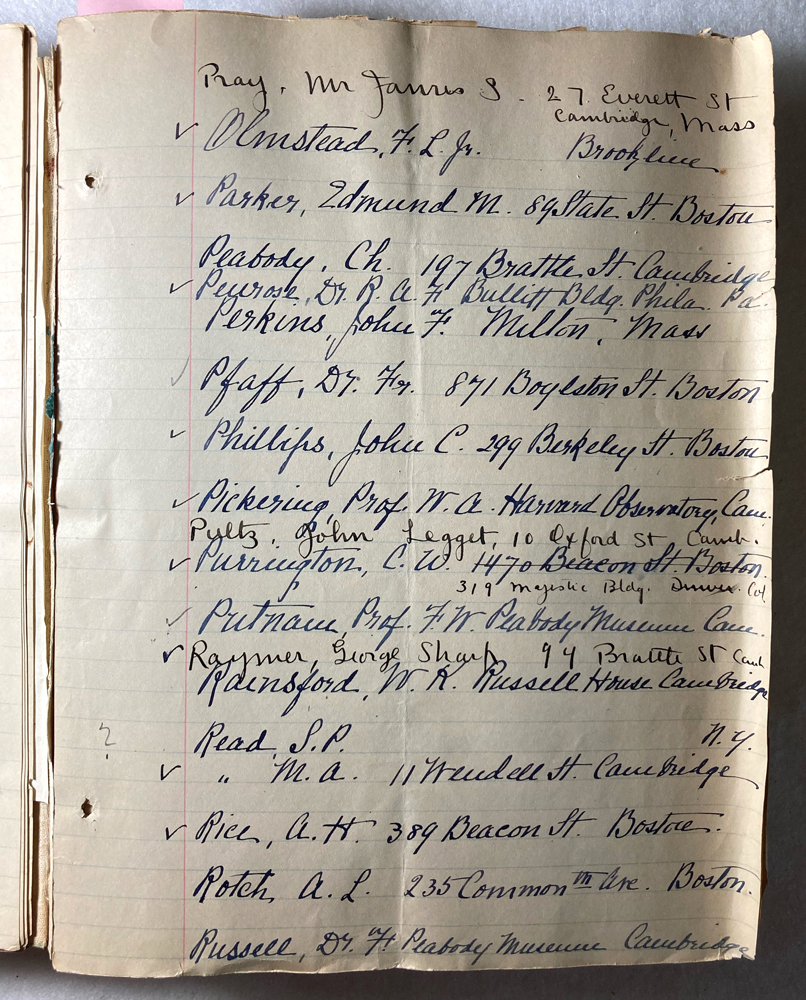 Pray, Mr James S. 27 Everett St
Cambridge, Mass
✓ Olmstead, F. L. Jr. Brookline
✓ Parker, Edmund M. 89 State St. Boston
Peabody, Ch. 197 Brattle St. Cambridge
✓ Penrose, Dr. R. A. F. Bullitt Bldg. Phila. Pa.
Perkins, John F. Milton, Mass
✓ Pfaff, Dr. Fr. 871 Boylston St. Boston
✓ Phillips, John C. 299 Berkeley St. Boston
✓ Pickering, Prof. W. A. Harvard Observatory, Cam.
Pultz, John Legget, 10 Oxford St Camb.
✓ Purrington, C. W. 1470 Beacon St. Boston.
319 Majestic Bldg. Denver. Col
✓ Putnam, Prof. F. W. Peabody Museum Cam.
✓ Raymer, George Sharp 94 Brattle St Camb
Rainsford, W. R. Russell House Cambridge
? Read, S. P. N. Y.
✓ " M. A. 11 Wendell St. Cambridge
✓ Rice, A. H. 389 Beacon St. Boston.
Rotch, A. L. 235 Common^th Ave. Boston.
Russell, Dr. F. Peabody Museum Cambridge